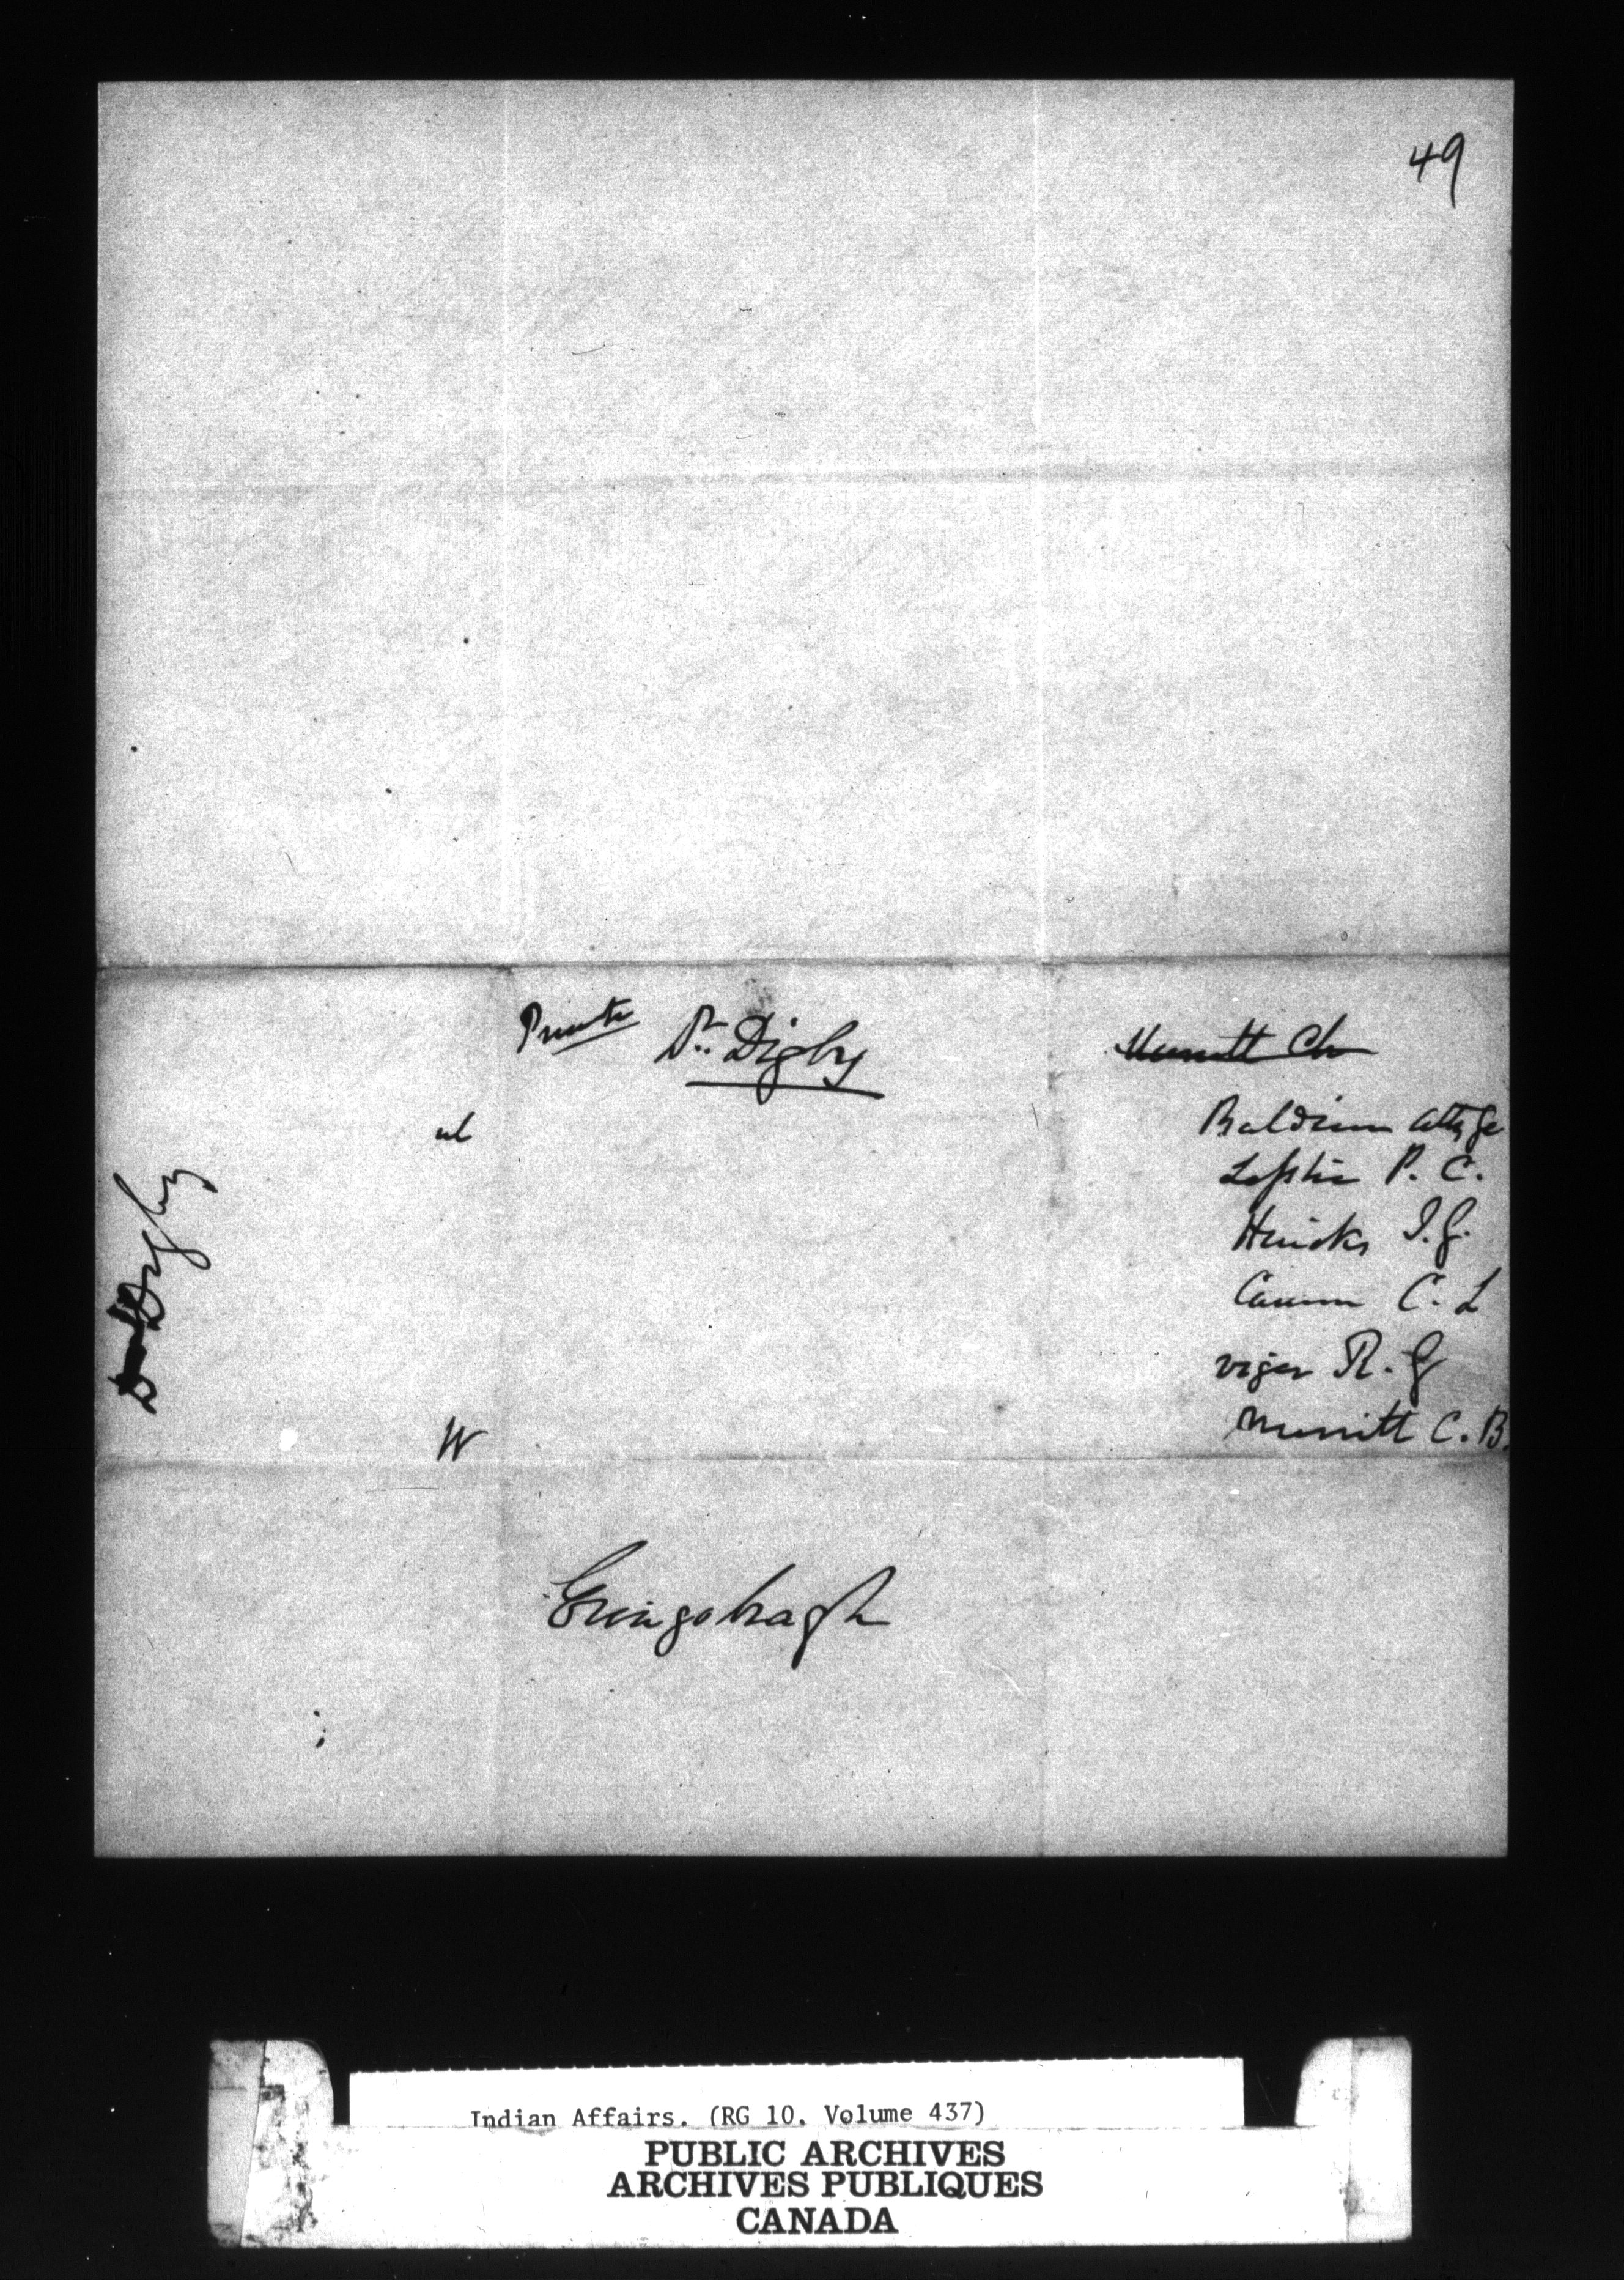 49
Private Dr. Digby
Merritt Ch
Baldwin Atty Ge
Leslie P. C.
Hincks I. G.
Cameron C. L
Viger R. G
Merritt C. B.
Digby
W
Eringobragh
Indian Affairs. (RG 10, Volume 437)
PUBLIC ARCHIVES
ARCHIVES PUBLIQUES
CANADA